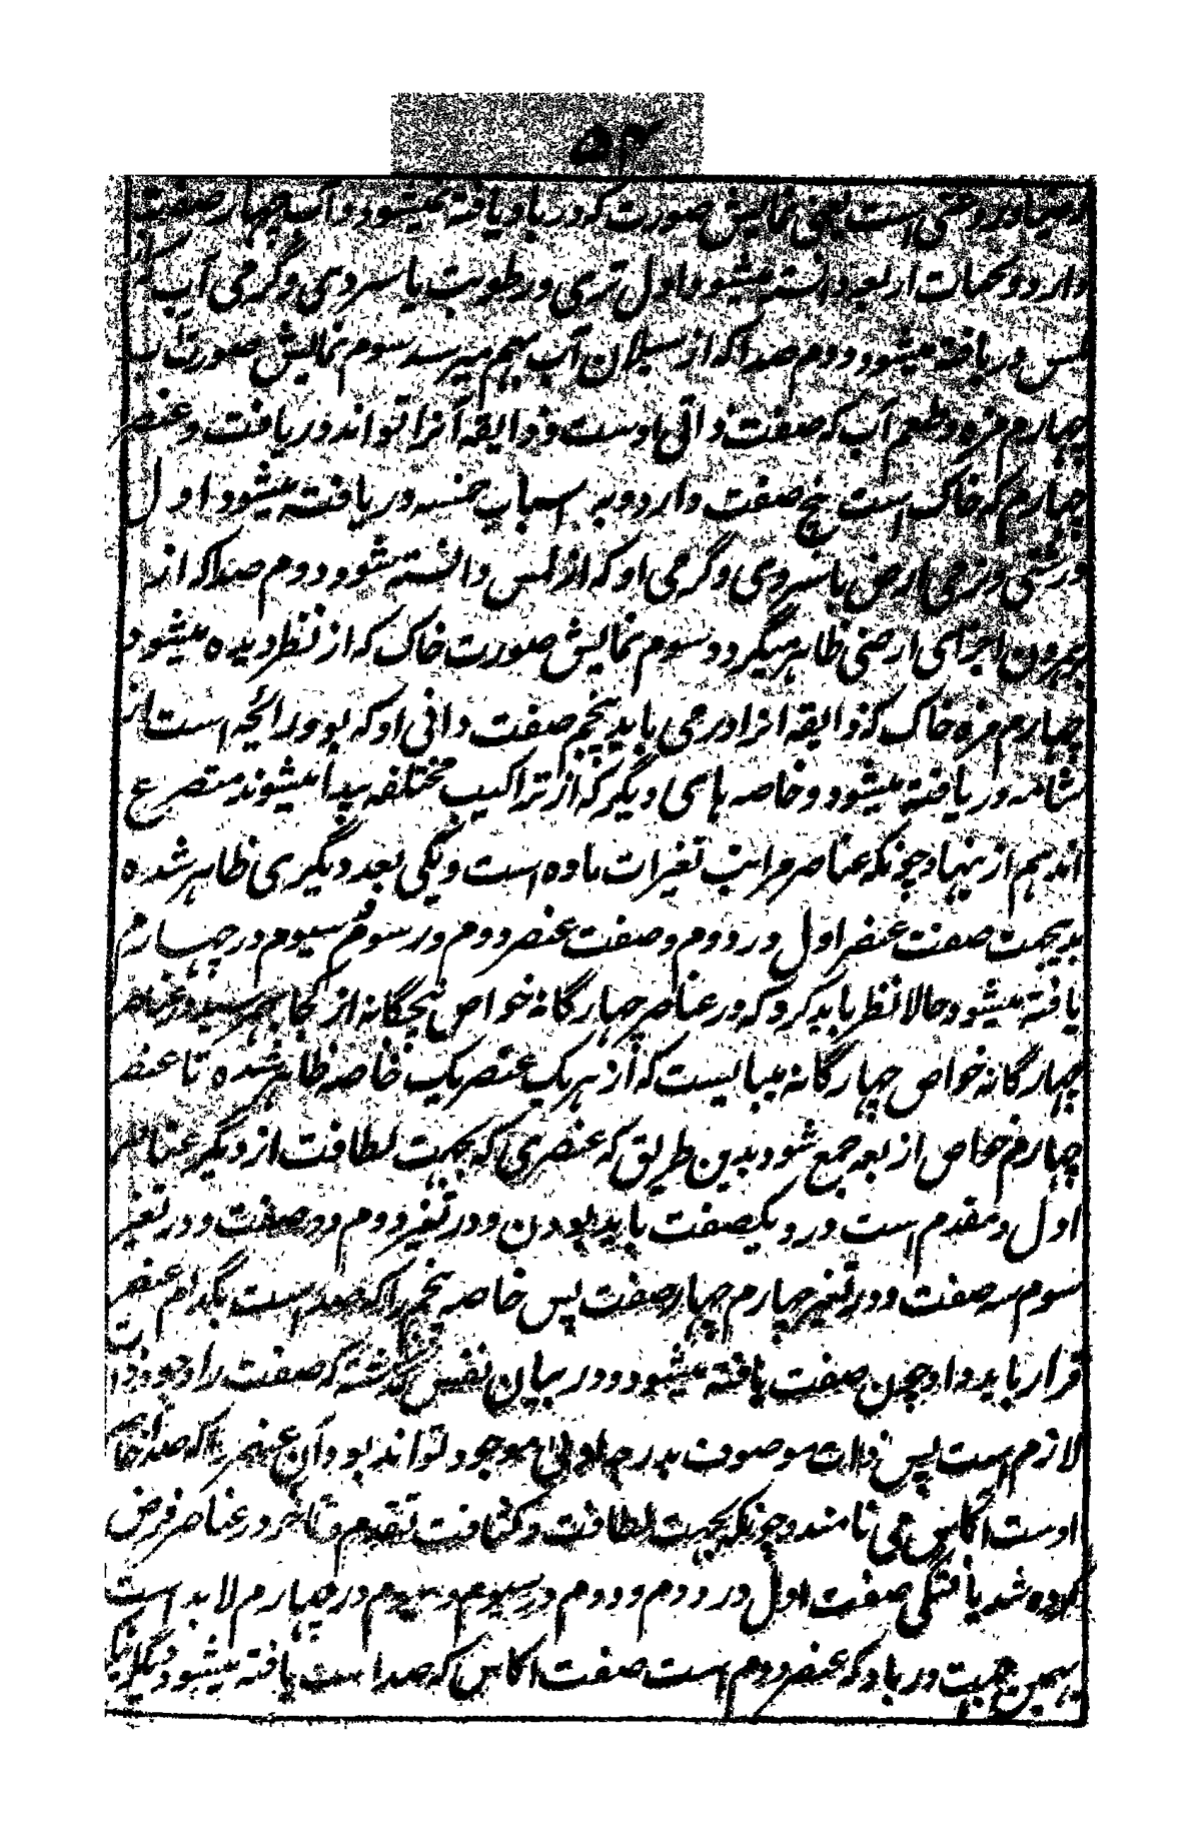 ۵۴
و ضیا و روشنی است یعنی نمایش صورت که در باد یافته نمیشود و آب چهار صفت
دارد و بجهات اربعه دانسته میشود اول تری و رطوبت یا سردی و گرمی آب که از
لمس دریافته میشود دوم صدا که از سیلان آب بهم میرسد سوم نمایش صورت آب
چهارم مزه و طعم آب که صفت ذاتی اوست و ذایقه آنرا تواند دریافت و عنصر
چهارم که خاک است پنج صفت دارد و به اسباب خمسه دریافته میشود اول
درشتی و نرمی ارض یا سردی و گرمی او که از لمس دانسته شود دوم صدا که از
اجزای ارضی ظاهر میگردد سوم نمایش صورت خاک که از نظر دیده میشود
چهارم مزه خاک که ذایقه انرا در می یابد پنجم صفت ذاتی او که بو و رائحه است از
شامه دریافته میشود و خاصه های دیگر که از تراکیب مختلفه پیدا میشوند متفرع
اند هم از ینها و چونکه عناصر مراتب تغیرات ماده است و یکی بعد دیگری ظاهر شده
بدیجهت صفت عنصر اول در دوم و صفت عنصر دوم در سوم و سیوم در چهارم
یافته میشود حالا نظر باید کرد که در عناصر چهارگانه خواص پنجگانه از کجا بهم رسید و عناصر
چهارگانه خواص چهارگانه میبایست که از هر یک عنصر یک خاصه ظاهر شده تا عنصر
چهارم خواص اربعه جمع شود بدین طریق که عنصری که بجهت لطافت از دیگر عناصر
اول و مقدم است در و یکصفت باید بودن و در تغیر دوم دو صفت و در تغیر
سوم سه صفت و در تغیر چهارم چهار صفت پس خاصه پنجم را که صدا است بکدام عنصر
قرار باید داد چون صفت یافته میشود و در بیان نفس گذشته که صفت را وجود ذات
لازم است پس ذات موصوف بدرجه اولی موجود تواند بود و آن عنصر را که صدا خاصه
اوست اکاس می نامند و چونکه بجهت لطافت و کثافت تقدم و تاخر در عناصر فرض
کرده شد یافتگی صفت اول در دوم و دوم در سیوم و سیوم در چهارم لابد است
بهمین جهت در باد که عنصر دوم است صفت اکاس که صدا است یافته میشود